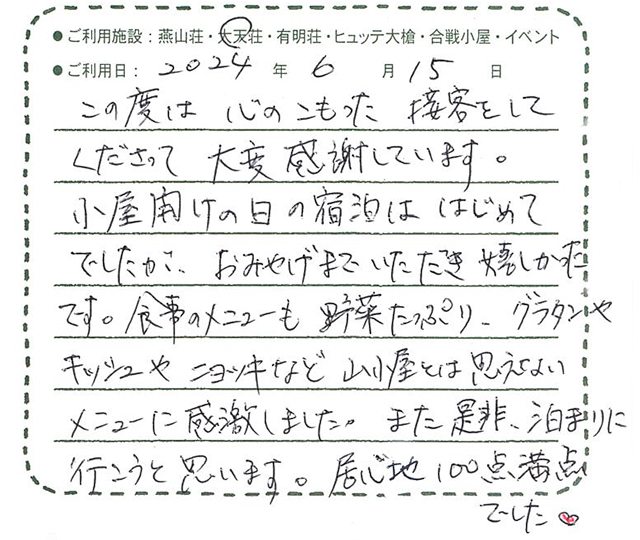 ●ご利用施設：燕山荘・大天荘・有明荘・ヒュッテ大槍・合戦小屋・イベント
●ご利用日：2024年6月15日
この度は 心のこもった 接客をして
くださって 大変感謝しています。
小屋開けの日の宿泊は はじめて
でしたが、おみやげまでいただき 嬉しかった
です。食事のメニューも 野菜たっぷり、グラタンや
キッシュや ニョッキなど 山小屋とは思えない
メニューに感激しました。また是非、泊まりに
行こうと思います。居心地100点満点
でした